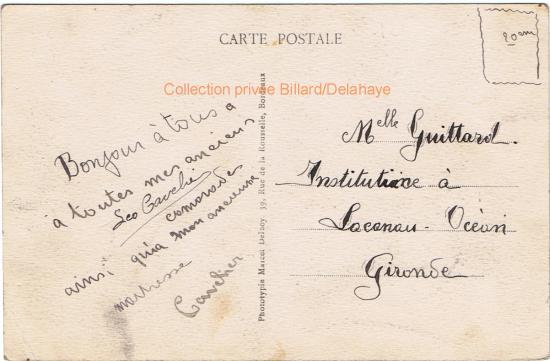 CARTE POSTALE
20 cm
Collection privée Billard/Delahaye
Bonjour à tous a
à toutes mes anciens
Leo Cavelié
camarades
ainsi qu'a mon ancienne
maitresse
Cavelier
Phototypie Marcel Delboy 39, Rue de la Rousselle, Bordeaux
Melle Guittard.
Institutione à
Lacanau-Océan
Gironde